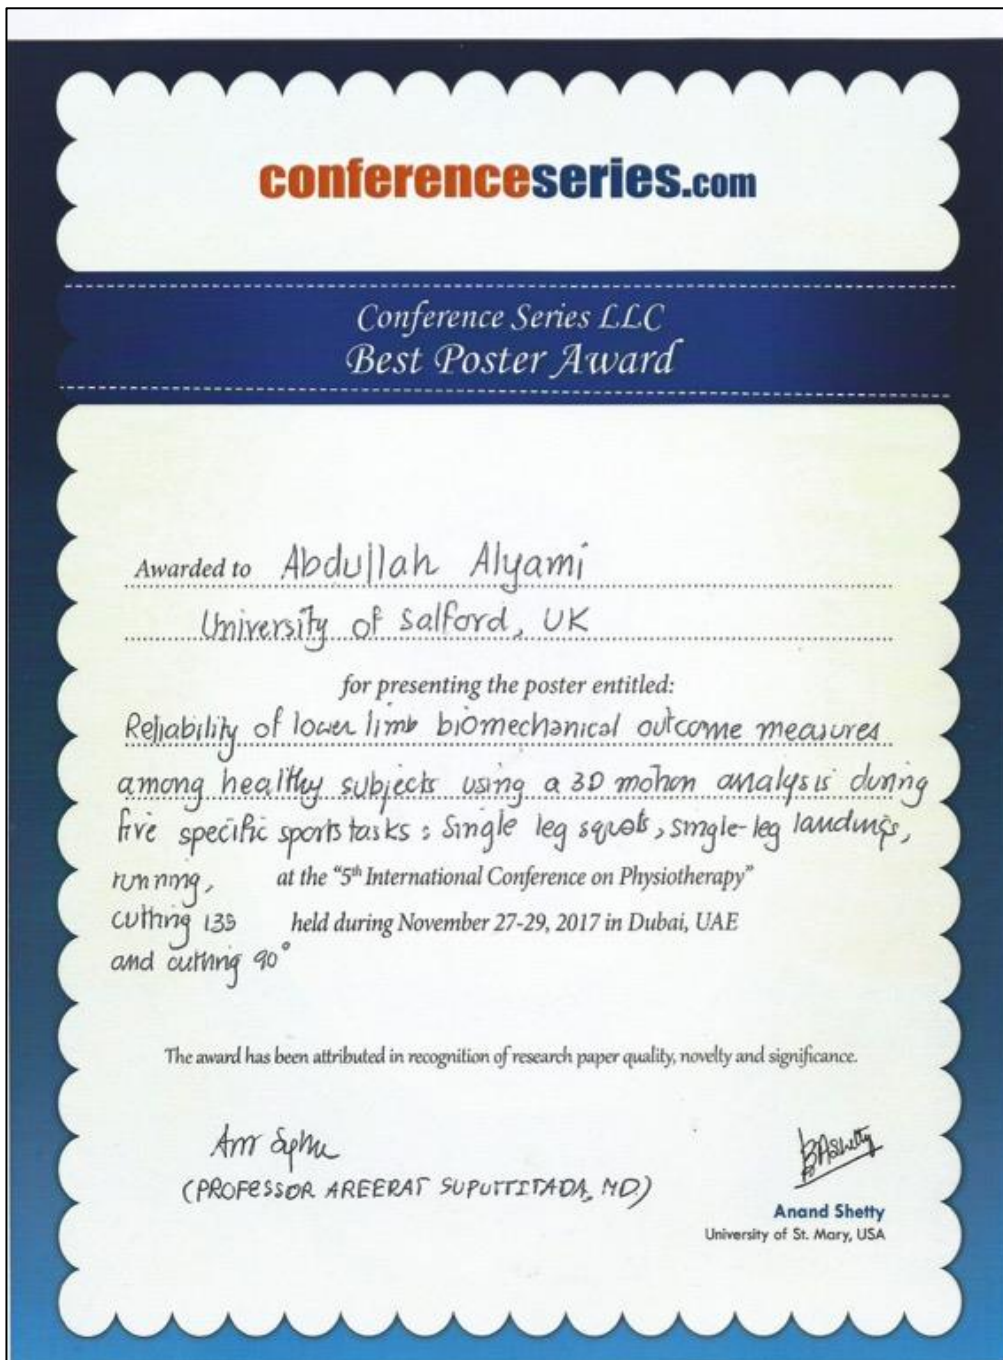 conferenceseries.com
Conference Series LLC
Best Poster Award
Awarded to Abdullah Alyami
University of Salford, UK
for presenting the poster entitled:
Reliability of lower limb biomechanical outcome measures
among healthy subjects using a 3D motion analysis during
five specific sports tasks : Single leg squats, single-leg landings,
running, at the "5th International Conference on Physiotherapy"
cutting 135 held during November 27-29, 2017 in Dubai, UAE
and cutting 90°
The award has been attributed in recognition of research paper quality, novelty and significance.
(PROFESSOR AREERAT SUPUTTITADA, MD)
BAShetty
Anand Shetty
University of St. Mary, USA